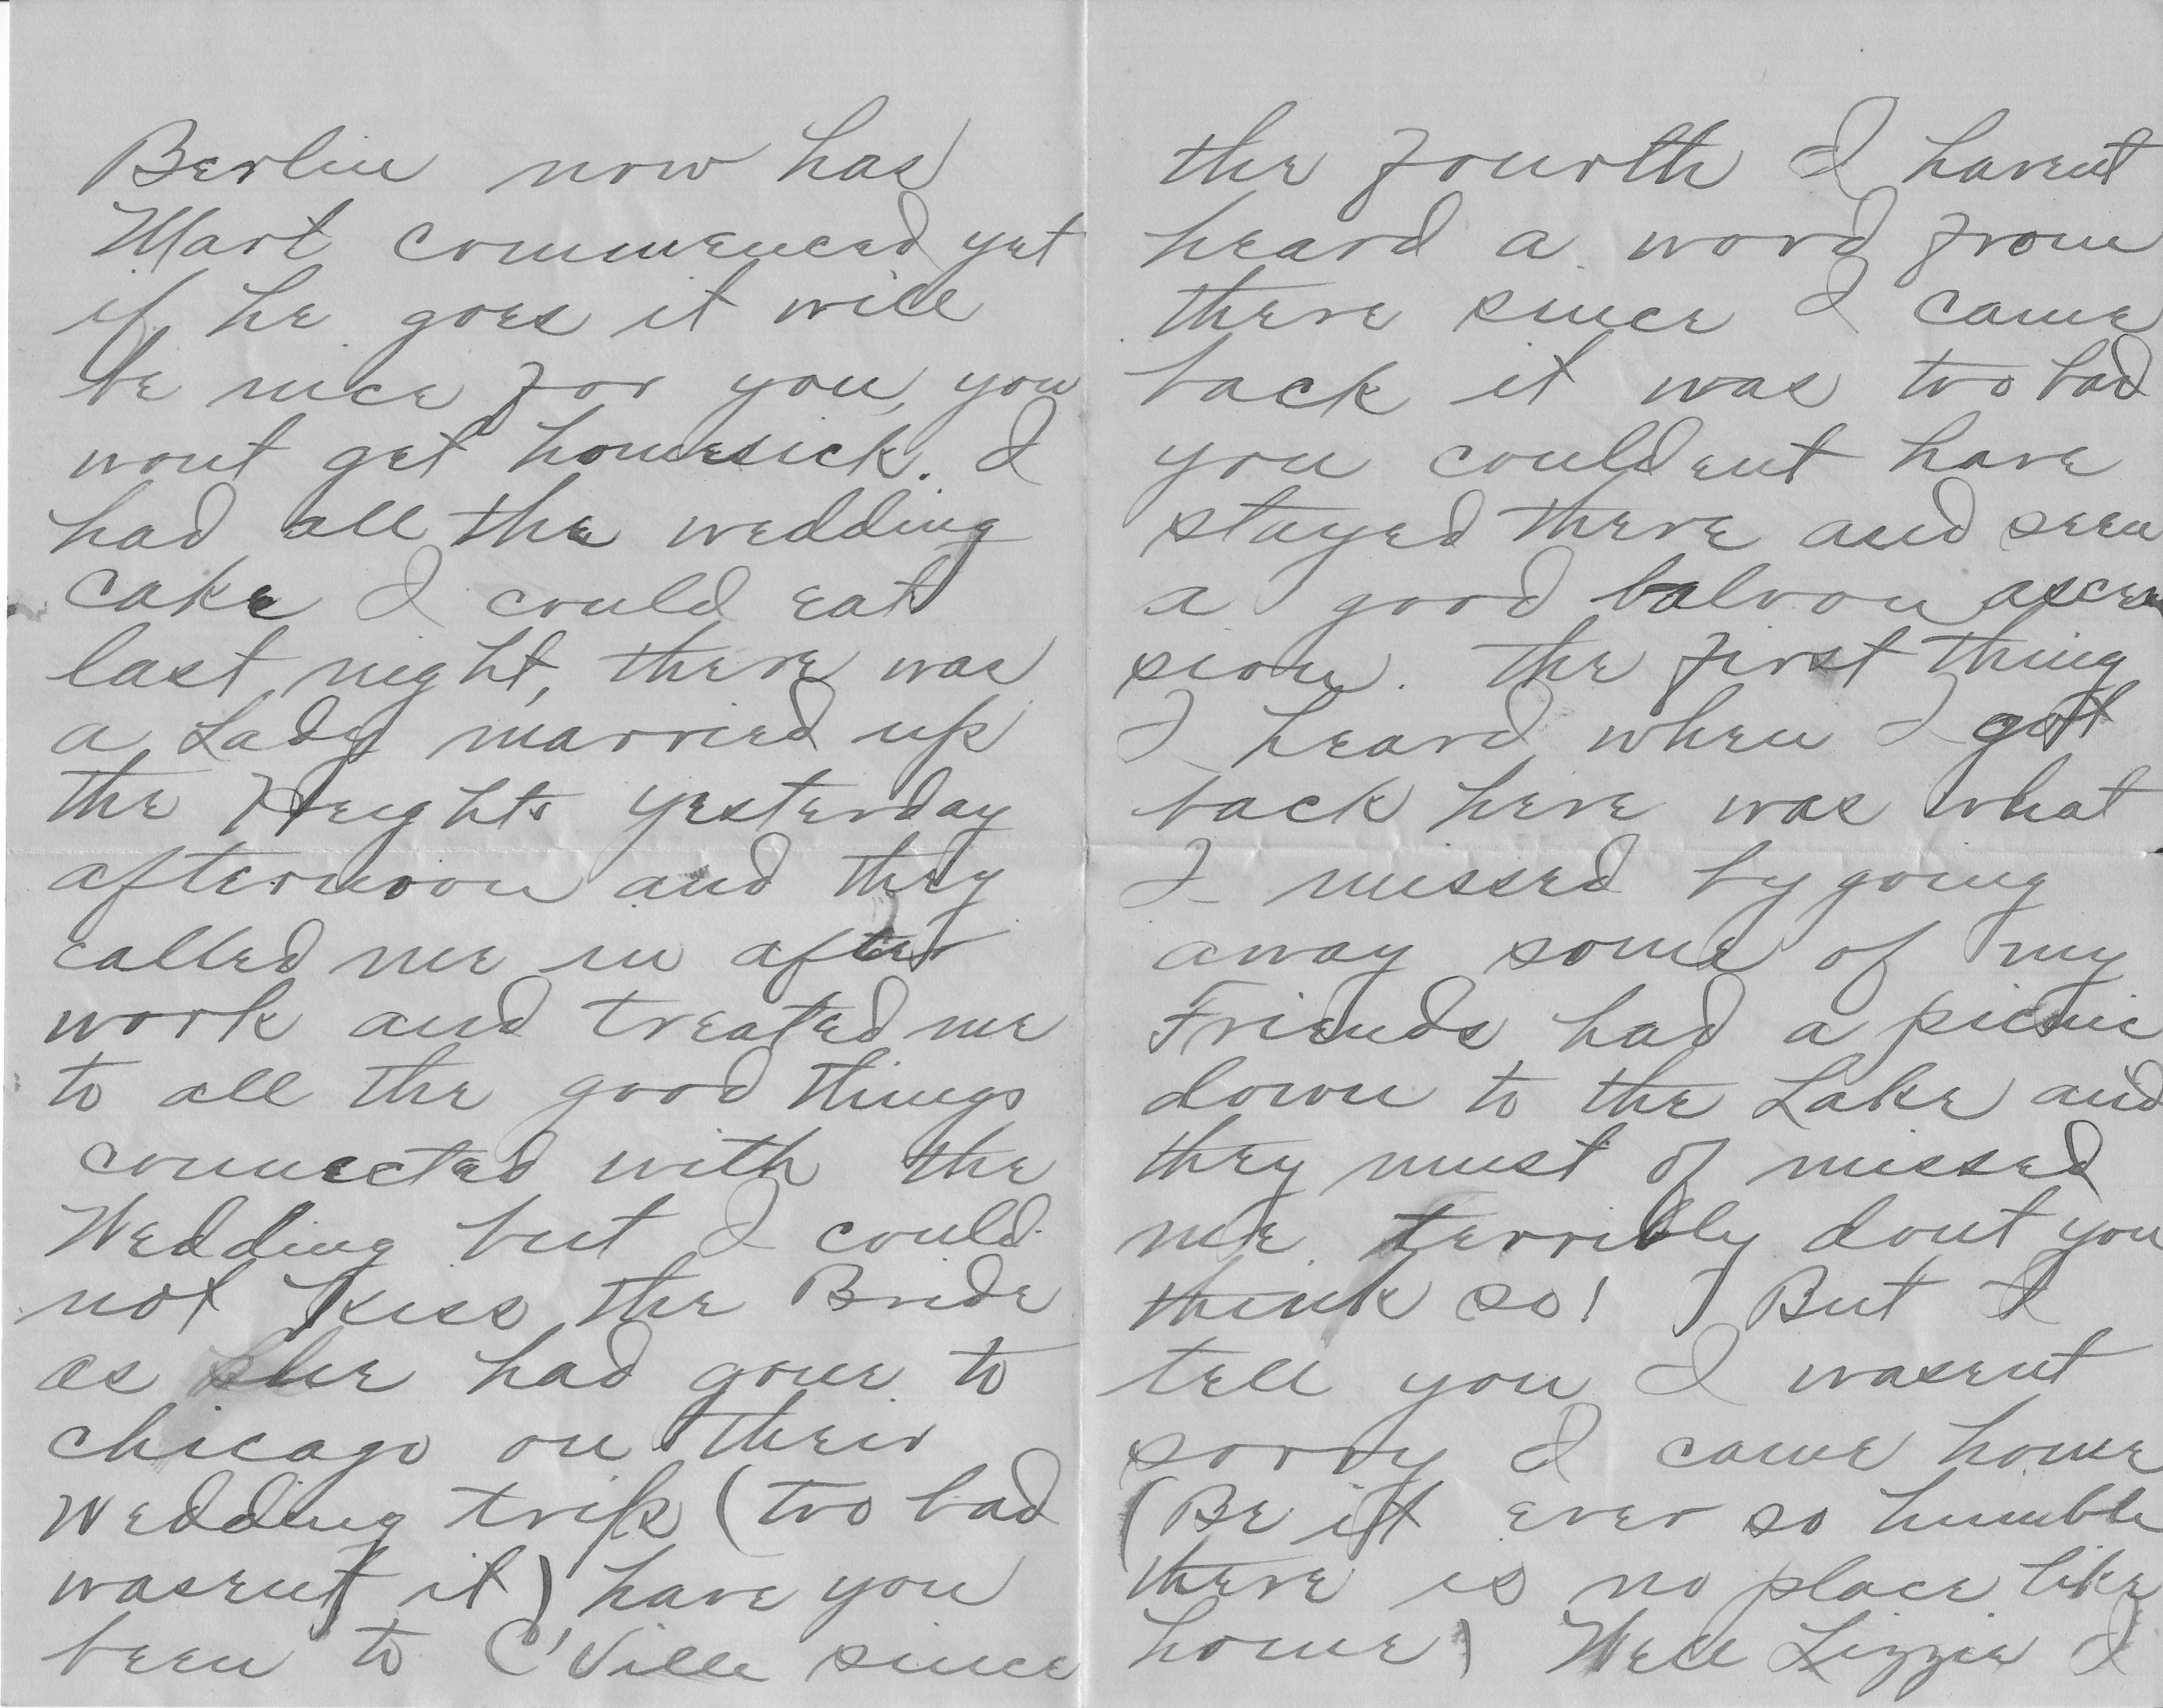 Berlin now has
Mart commenced yet
if he goes it will
be nice for you, you
wont get homesick. I
had all the wedding
cake I could eat
last night, there was
a Lady married up
the Heights yesterday
afternoon and they
called me in after
work and treated me
to all the good things
connected with the
Wedding but I could
not Kiss the Bride
as she had gone to
chicago on their
Wedding trip (too bad
wasent it) have you
been to C'Ville since
the fourth I havent
heard a word from
there since I came
back it was too bad
you couldent have
stayed there and seen
a good baloon ascen
sion. the first thing
I heard when I gott
back here was what
I missed by going
away some of my
Friends had a picnic
down to the Lake and
they must of missed
me terribly dont you
think so! But I
tell you I wasent
sorry I came home
(Be it ever so humble
there is no place like
home) Well Lizzie I